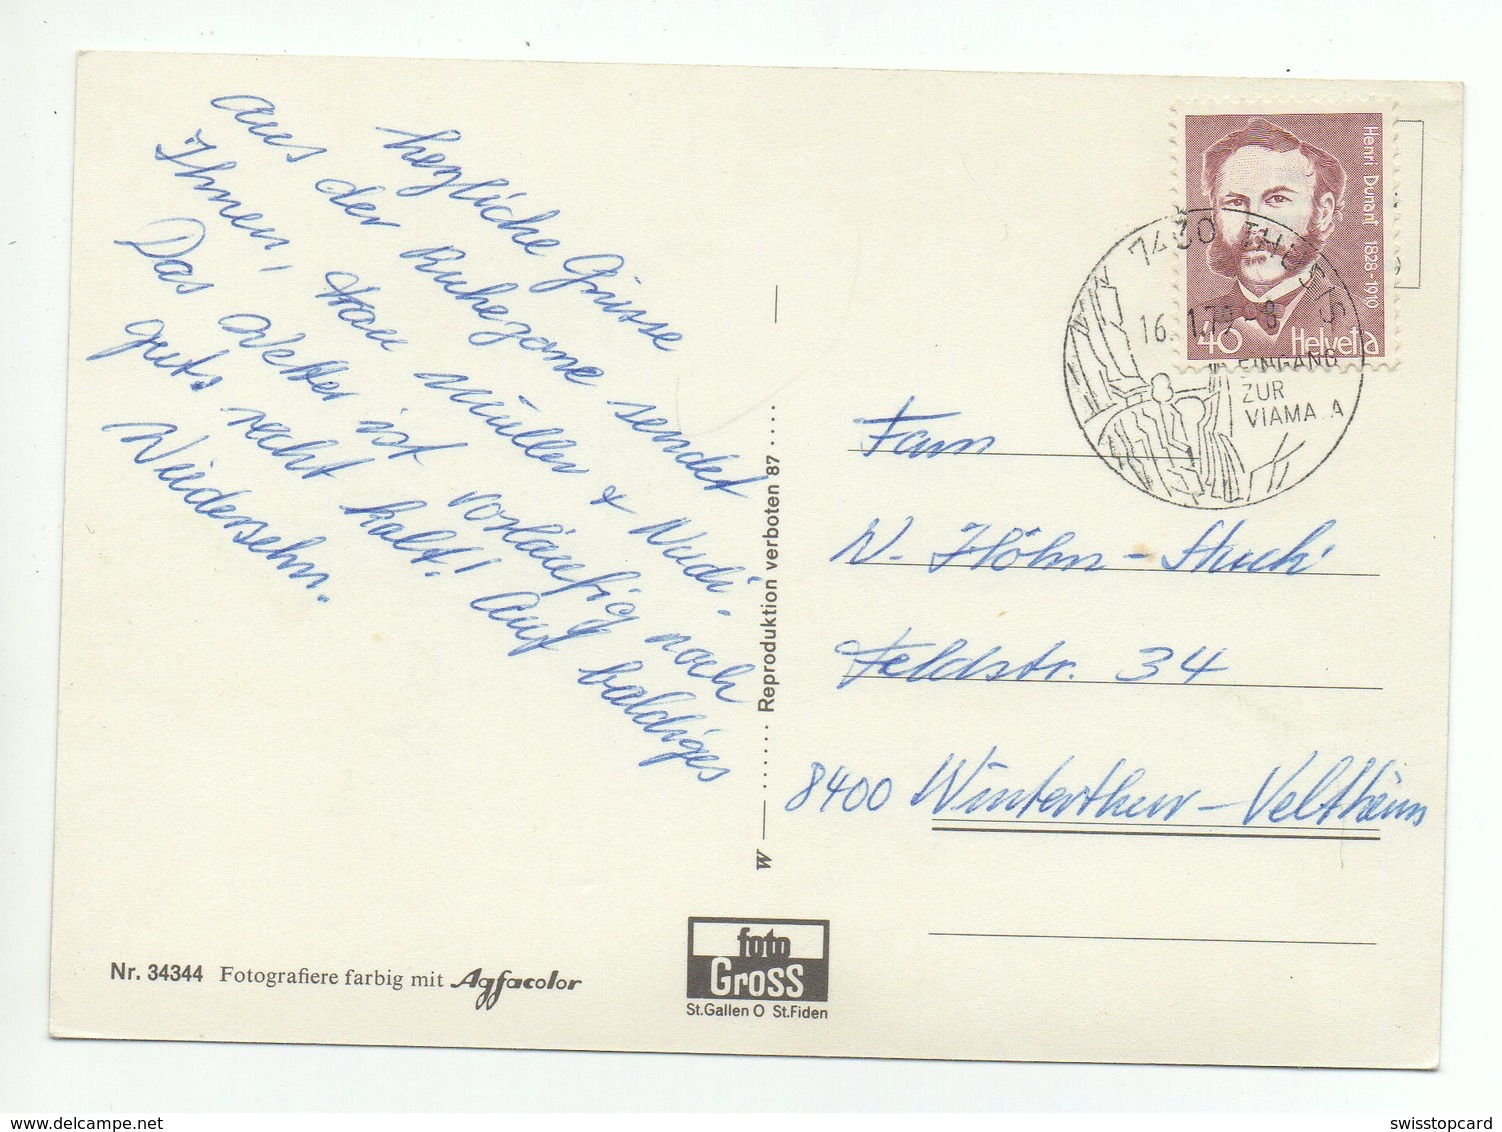 herzliche Grüsse
aus der Ruhezone sendet
Ihnen, Frau Müller & Wädi.
Das Wetter ist vorläufig noch
guts recht kalt! Auf baldiges
Wiedersehn.
Henri Dunant 1828-1910
40 Helvetia
7430 THUSIS
16.1.79-8
EINGANG
ZUR
VIAMALA
Fam
W. Höhn-Stucki
Feldstr. 34
8400 Winterthur-Veltheim
W Reproduktion verboten 87
foto
Gross
St.Gallen O St.Fiden
Nr. 34344 Fotografiere farbig mit Agfacolor
www.delcampe.net
swisstopcard